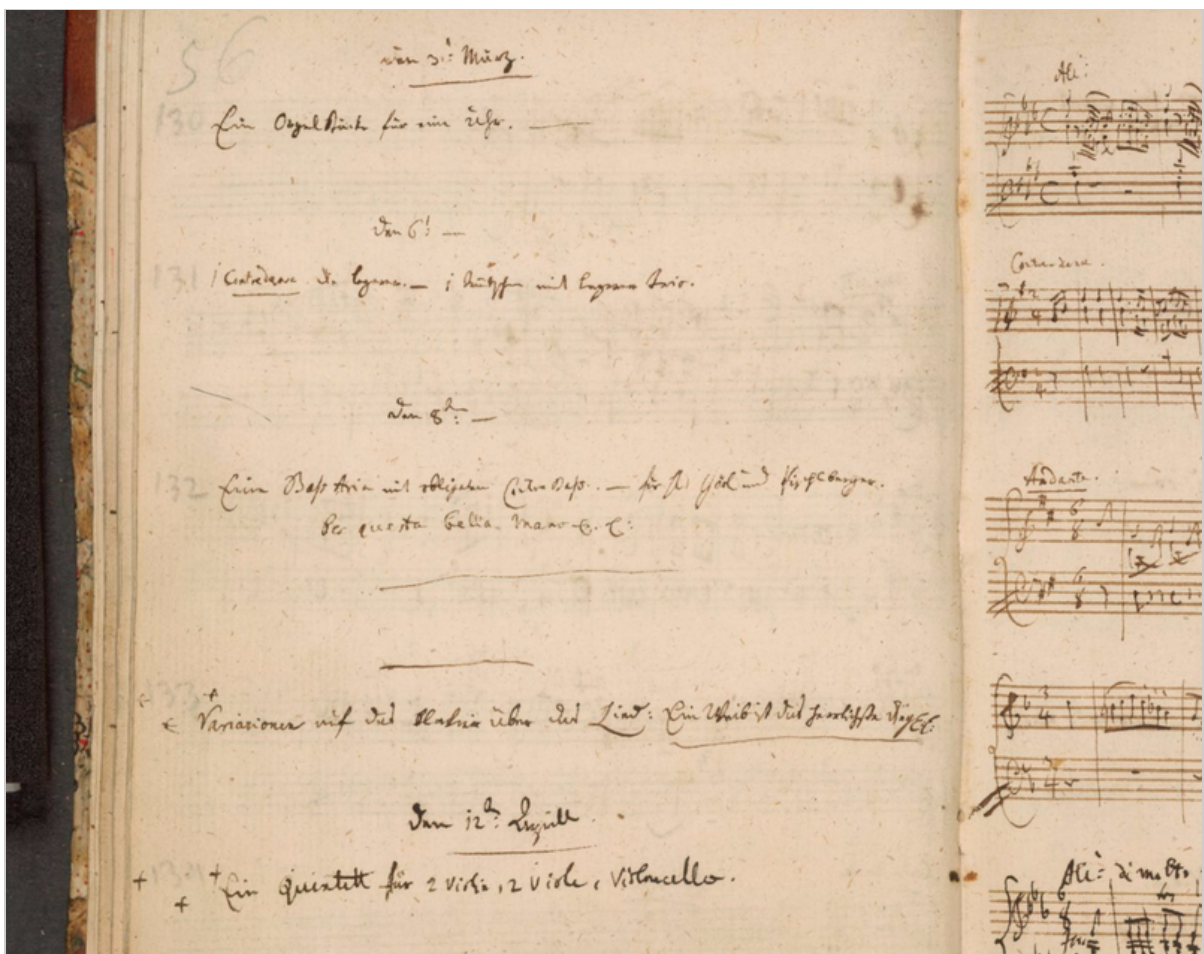 56
den 3:^t März.
130 Ein Orgel Stücke für eine Uhr. —
den 6:^t —
131 1 Contredanse. die Leyerer. — 1 teütscher mit Leyerer trio.
den 8:^t —
132 Eine Bass Aria mit obligaten ContraBass. — für H: Görl und Pischlberger.
Per questa bella mano &. &:
133
Variazionen auf das klavier über das Lied: Ein Weib ist das herrlichste Ding &:
den 12:^t Aprill.
134
Ein Quintett für 2 Violin, 2 Viole, e Violoncello.
All:
Contredanse.
Andante.
All:º di molto